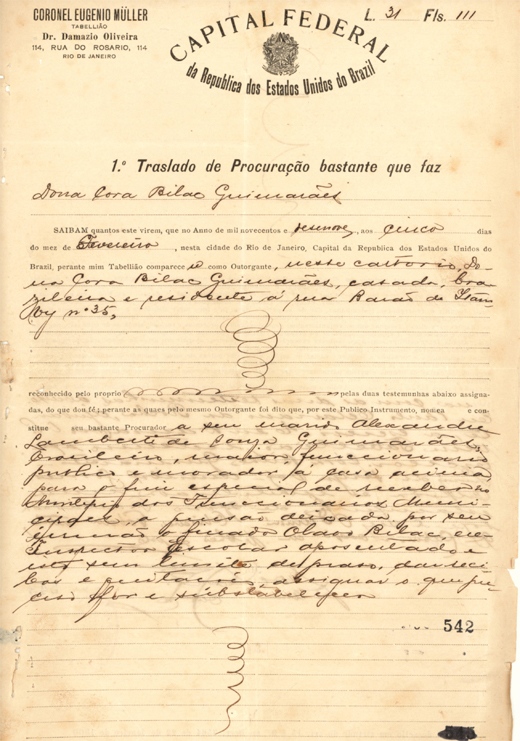 CORONEL EUGENIO MÜLLER
TABELLIÃO
Dr. Damazio Oliveira
114, RUA DO ROSARIO, 114
RIO DE JANEIRO
L. 31 Fls. 111
CAPITAL FEDERAL
da Republica dos Estados Unidos do Brazil
1.º Traslado de Procuração bastante que faz
Dona Cora Bilac Guimarães
SAIBAM quantos este virem, que no Anno de mil novecentos e desenove, aos cinco dias
do mez de Fevereiro, nesta cidade do Rio de Janeiro, Capital da Republica dos Estados Unidos do
Brazil, perante mim Tabellião comparece u como Outorgante, neste cartorio, Do-
na Cora Bilac Guimarães, casada, bra-
zileira e residente á rua Barão de Itam-
by nº 35,
reconhecido pelo proprio pelas duas testemunhas abaixo assigna-
das, do que dou fé; perante as quaes pelo mesmo Outorgante foi dito que, por este Publico Instrumento, nomea e consti-
titue seu bastante Procurador a seu marido Alexandre
Lamberti de Souza Guimarães,
brasileiro, maior, funccionario
publico e morador já casa acima
para o fim especial de receber no
Montepio dos Funccionarios Muni-
cipaes, a pensão deixada por seu
irmão o finado Olavo Bilac, ex-
Inspector Escolar aposentado e
isto sem limite de praso, dar reci-
bos e quitações, assignar o que pre-
ciso for e substabelecer
542